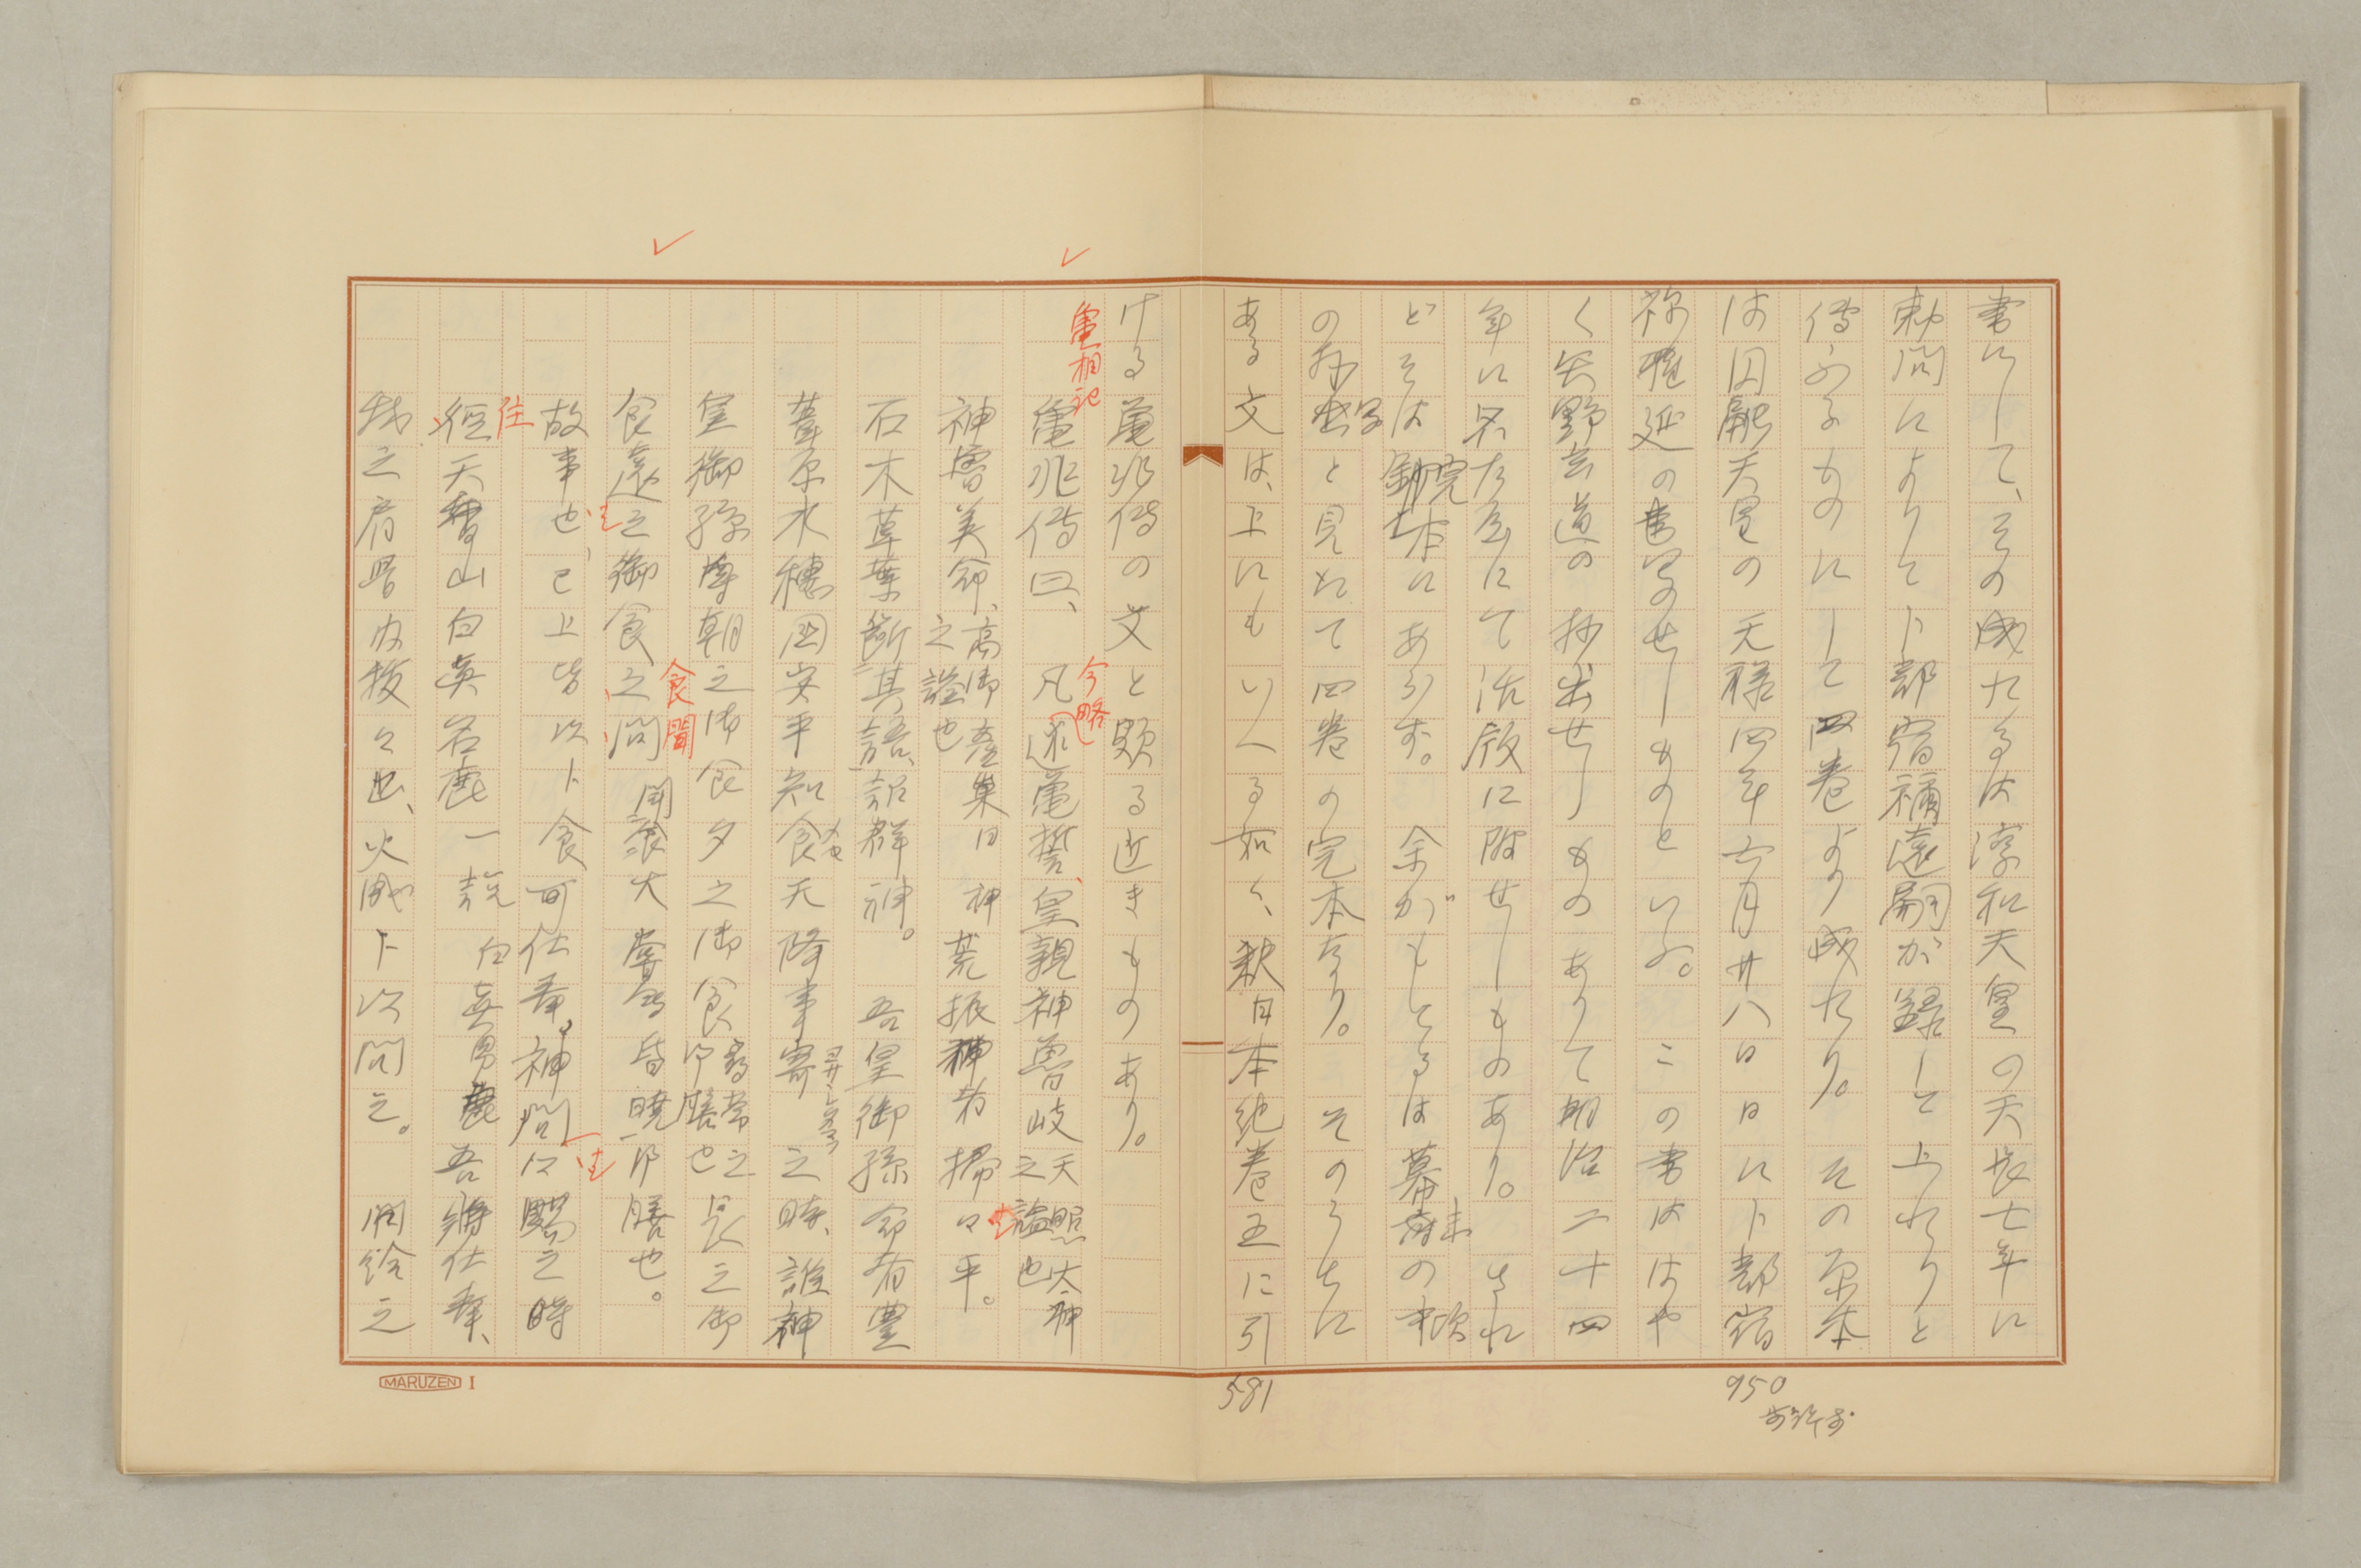 書にして、その成れるは淳和天皇の天長七年に
勅問によりて卜部宿禰遠嗣が録して上れりと
傳ふるものにして四巻より成れり。その原本
は因融天皇の天禄四年六月廿八日に卜部宿
祢雅延の書写せしものといふ。この書ははや
く矢野玄道の抄出せしものありて明治二十四
年に名古屋にて活版に附せしものあり。され
どそは完本にあらず。余がもてるは幕末の
の写と見えて四巻の完本なり。そのうちに
ある文は、上にもいへる如く、釈日本紀巻五に引
ける亀兆傳の文と頗る近きものあり。
亀相記
亀兆傳曰、凡述亀誓、皇親神魯岐天照太神之謚也
今略
神魯美命、高御産巣日神之謚也荒振神者掃々平。
石木草葉断其語、詔群神。吾皇御孫命者豊
葦原水穂国安平知食天降事寄之時、誰神
皇御孫尊朝之御食夕之御食尋常之御膳也長之御
食遠之御食之問
食聞
聞食大嘗皆暁御膳也。
故事也、已上皆以卜食可仕奉。神問々賜之時
住
径天香山白真名鹿一説白真男鹿吾将仕奉、
我之肩骨内抜々出、火成卜以問之。問給之
581
950
MARUZEN I